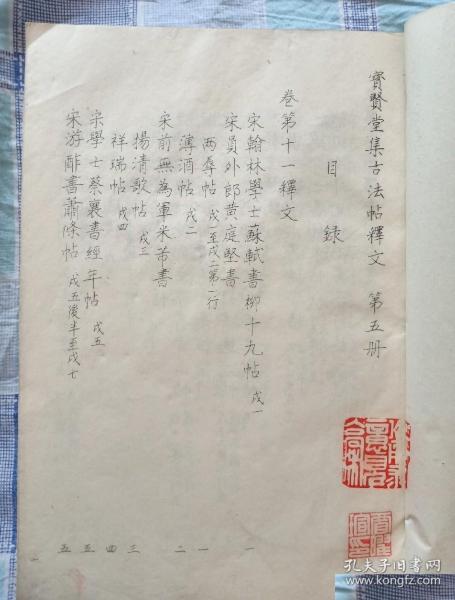 寳賢堂集古法帖釋文 第五册
目錄
卷第十一釋文
宋翰林學士蘇軾書柳十九帖 戊一
宋員外郎黄庭堅書
两辱帖 戊一至戊二第一行
薄酒帖 戊二
宋前無為軍米芾書
揚清歌帖 戊三
祥瑞帖 戊四
宋學士蔡襄書經年帖 戊五
宋游酢書蕭條帖 戊五後半至戊七
一
一
二
三
四
五
五
孔夫子旧书网
www.kongfz.com